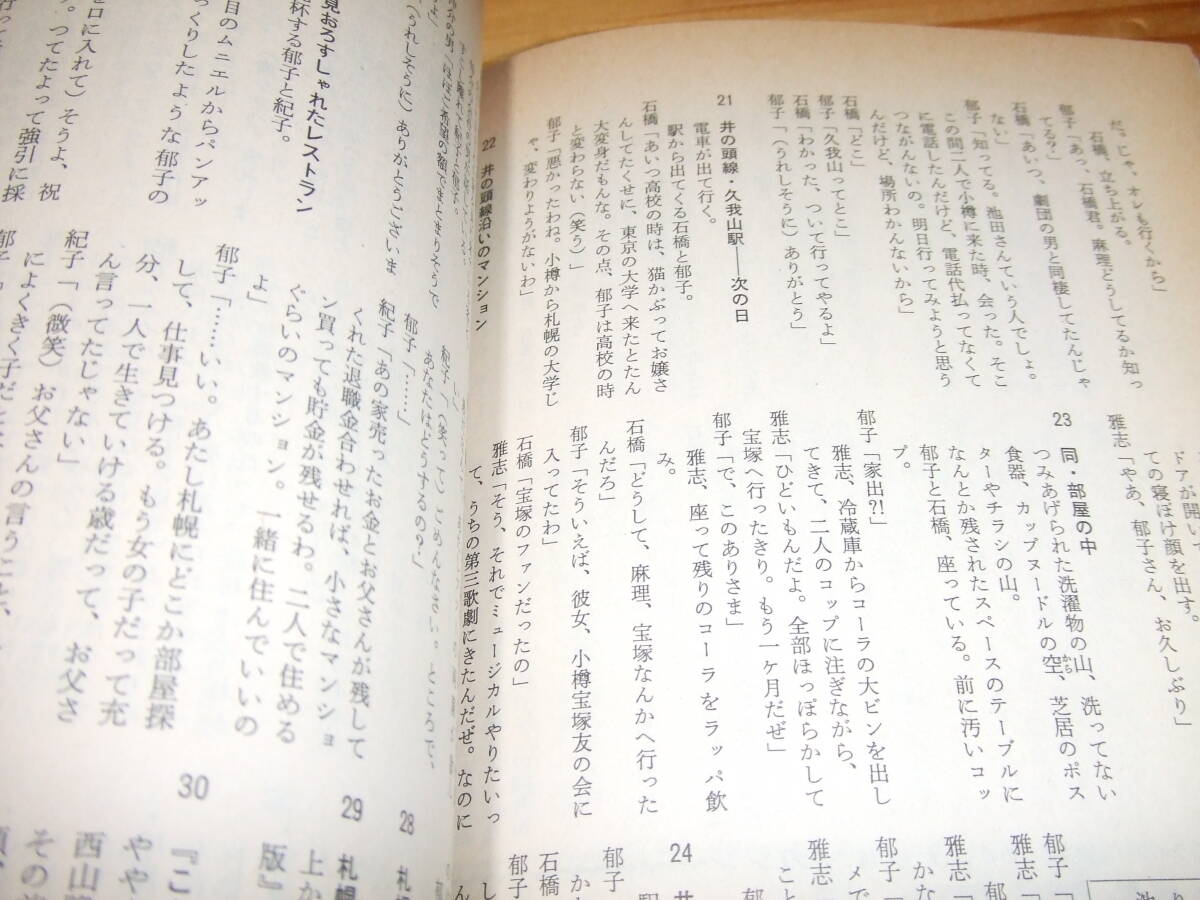 だ。じゃ、オレも行くから」
石橋、立ち上がる。
郁子「あっ、石橋君。麻理どうしてるか知っ
てる?」
石橋「あいつ、劇団の男と同棲してたんじゃ
ない」
郁子「知ってる。池田さんていう人でしょ。
この間二人で小樽に来た時、会った。そこ
に電話したんだけど、電話代払ってなくて
つながんないの。明日行ってみようと思う
んだけど、場所わかんないから」
石橋「どこ」
郁子「久我山ってとこ」
石橋「わかった、ついて行ってやるよ」
郁子「(うれしそうに)ありがとう」
21 井の頭線・久我山駅――次の日
電車が出て行く。
駅から出てくる石橋と郁子。
石橋「あいつ高校の時は、猫かぶってお嬢さ
んしてたくせに、東京の大学へ来たとたん
大変身だもんな。その点、郁子は高校の時
と変わらない(笑う)」
郁子「悪かったわね。小樽から札幌の大学じ
ゃ、変わりようがないわ」
22 井の頭線沿いのマンション
ドアが開いて
ての寝ぼけ顔を出す。
雅志「やあ、郁子さん、お久しぶり」
23 同・部屋の中
つみあげられた洗濯物の山、洗ってない
食器、カップヌードルの空、芝居のポス
から
ターやチラシの山。
なんとか残されたスペースのテーブルに
郁子と石橋、座っている。前に汚いコッ
プ。
郁子「家出?!」
雅志、冷蔵庫からコーラの大ビンを出し
てきて、二人のコップに注ぎながら、
雅志「ひどいもんだよ。全部ほっぽらかして
宝塚へ行ったきり。もう一ヶ月だぜ」
郁子「で、このありさま」
雅志、座って残りのコーラをラッパ飲
み。
石橋「どうして、麻理、宝塚なんかへ行った
んだろ」
郁子「そういえば、彼女、小樽宝塚友の会に
入ってたわ」
石橋「宝塚のファンだったの」
雅志「そう、それでミュージカルやりたいっ
て、うちの第三歌劇にきたんだぜ。なのに
郁子「
雅志「
郁子
雅志
24 井
駅
郁子
石橋
郁子
(うれしそうに)ありがとうございま
見おろすしゃれたレストラン
杯する郁子と紀子。
目のムニエルからパンアッ
っくりしたような郁子の
を口に入れて)そうよ、祝
。つてたよって強引に採
紀子「(笑って)ごめんなさい。ところで、
あなたはどうするの?」
郁子「……」
紀子「あの家売ったお金とお父さんが残して
くれた退職金合わせれば、小さなマンショ
ン買っても貯金が残せるわ。二人で住める
ぐらいのマンション。一緒に住んでいいの
よ」
郁子「……いい。あたし札幌にどこか部屋探
して、仕事見つける。もう女の子だって充
分、一人で生きていける歳だって、お父さ
ん言ってたじゃない」
紀子「(微笑)お父さんの言うこと、
によくきく子だ
28 札
29 札幌
上か
版』
30
『こ
やや
西山
その